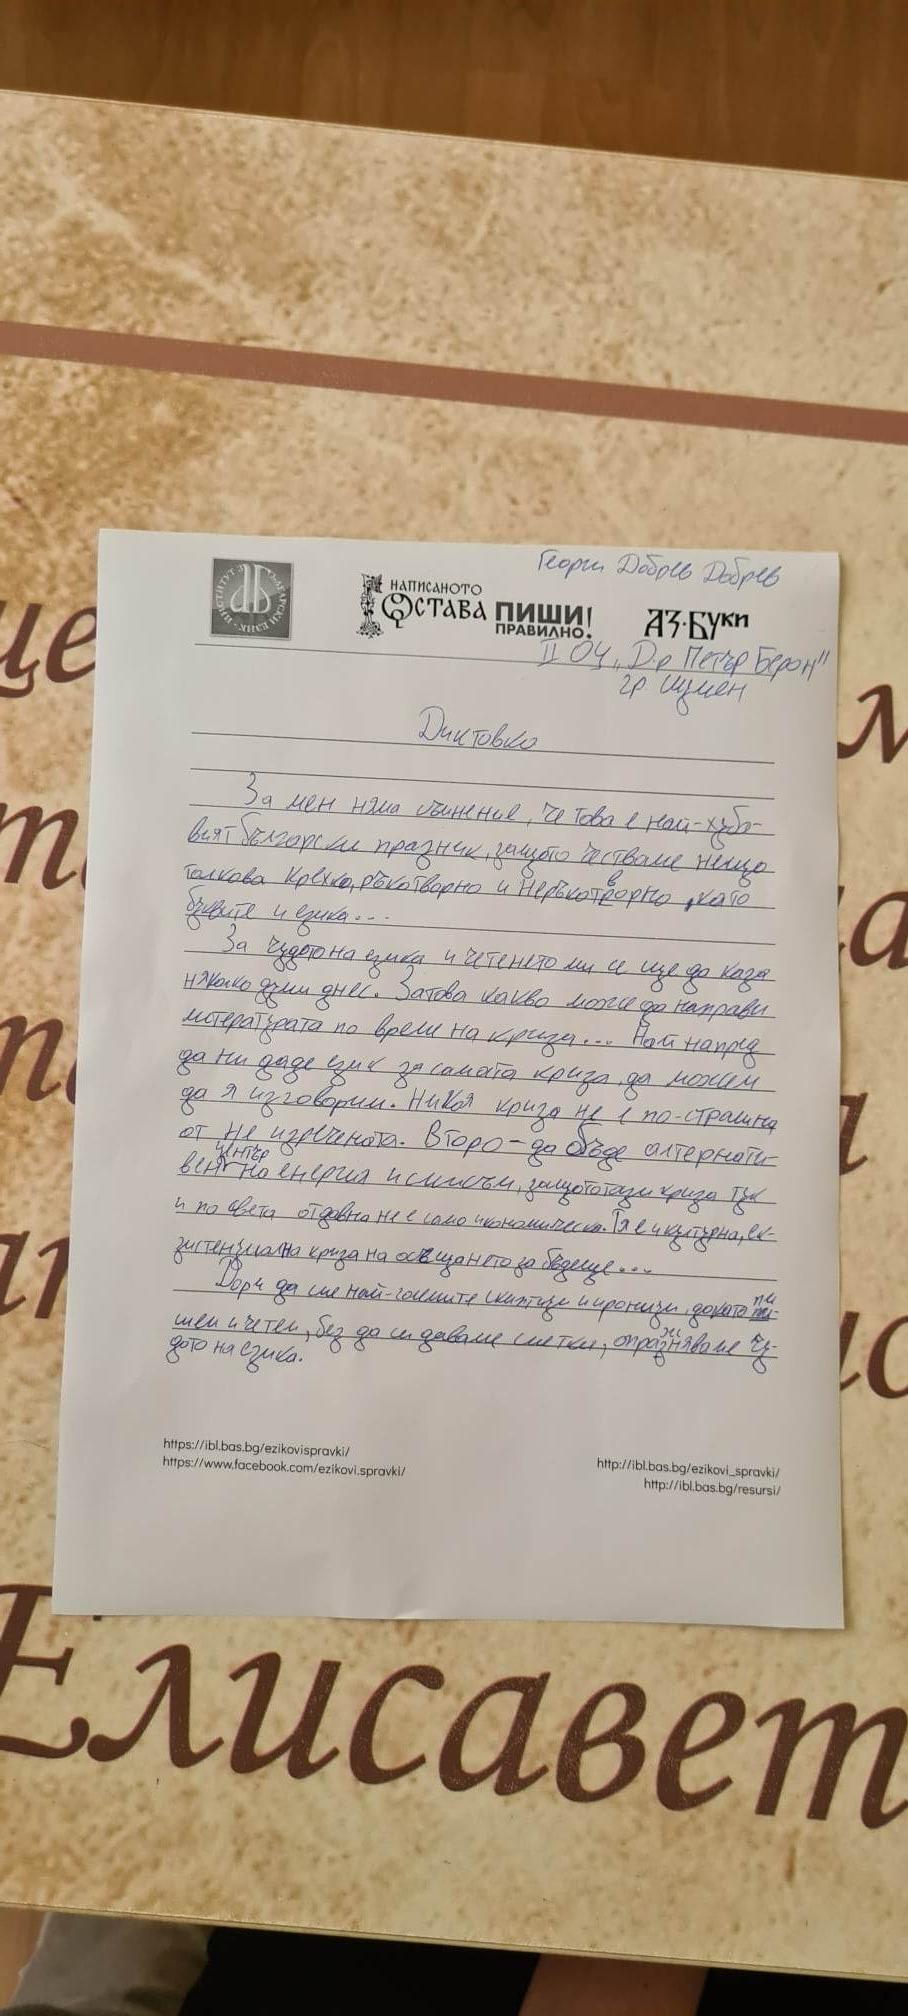 Георги Добрев Добрев
ИНСТИТУТ ЗА БЪЛГАРСКИ ЕЗИК
НАПИСАНОТО
ОСТАВА ПИШИ!
ПРАВИЛНО!
АЗ·БУКИ
II ОУ „Д-р Петър Берон"
гр. Шумен
Диктовка
За мен няма съмнение, че това е най-хуба-
вият български празник, защото честваме нещо
толкова крехко, ръкотворно и неръкотворно, като
буквите и езика...
За чудото на езика и четенето ми се ще да кажа
няколко думи днес. Затова какво може да направи
литературата по време на криза... Най напред
да ни даде език за самата криза, да можем
да я изговорим. Никоя криза не е по-страшна
от не изречената. Второ - да бъде алтернати-
вен център на енергия и смисъл, защото тази криза тук
и по света отдавна не е само икономическа. Тя е и културна, ек-
зистенциална криза на осещането за бъдеще...
Дори да сме най-големите скептици и иронизи, докато пи-
шем и четем, без да си даваме сметки, опразняваме чу-
дото на езика.
https://ibl.bas.bg/ezikovispravki/
https://www.facebook.com/ezikovi.spravki/
http://ibl.bas.bg/ezikovi_spravki/
http://ibl.bas.bg/resursi/
це
м
та
Елисавет